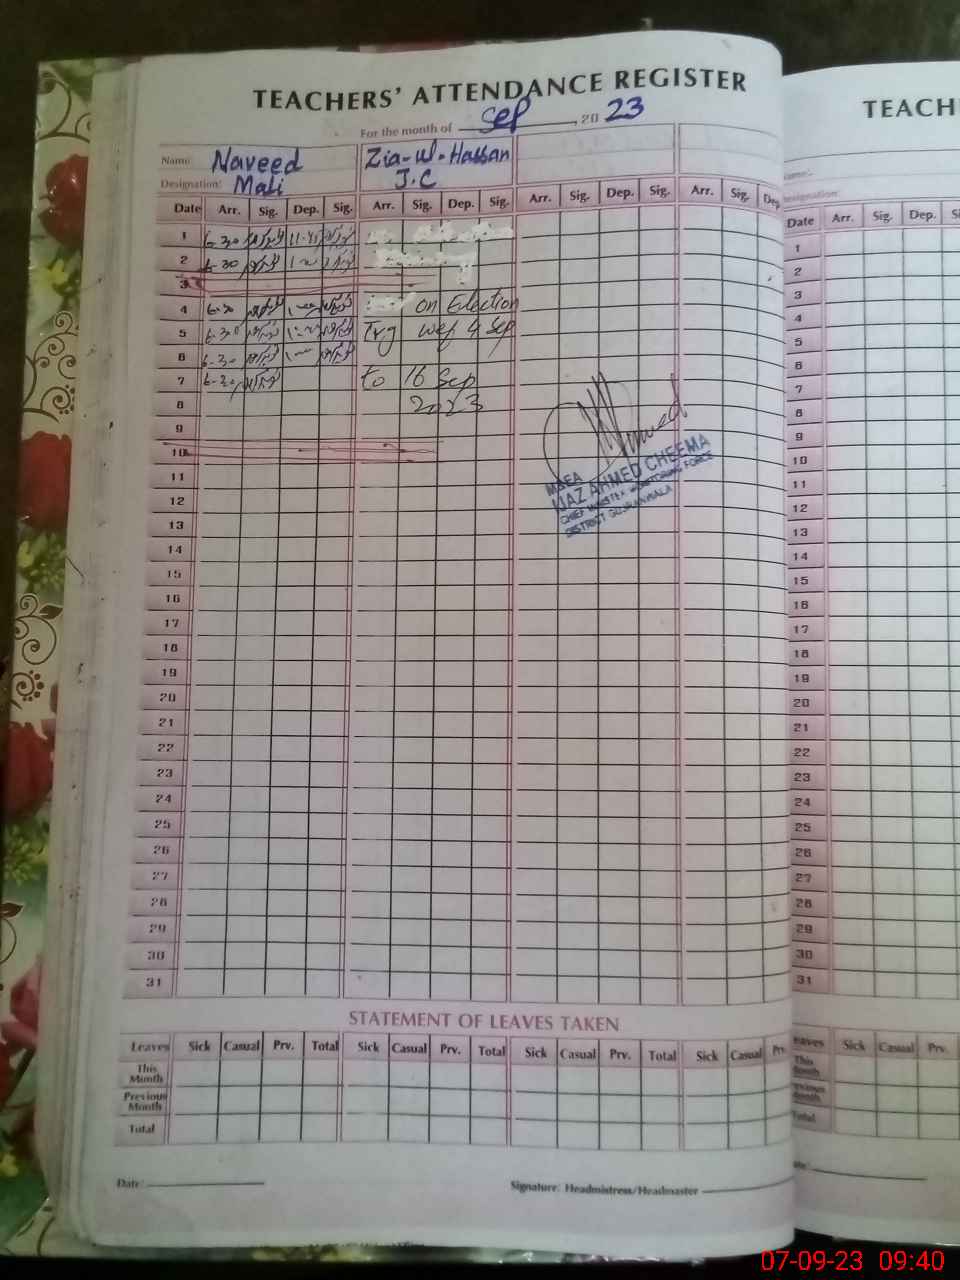 TEACHERS' ATTENDANCE REGISTER
For the month of Sep, 20 23
Name: Naveed Zia-ul-Hassan
Designation: Mali J.C
Date Arr. Sig. Dep. Sig. Arr. Sig. Dep. Sig. Arr. Sig. Dep. Sig. Arr. Sig. Dep
1 6-30 11-45
2 6-30
3
4 6-30 on Election
5 6-30 Trg wef 4 Sep
6 6-30
7 6-30 to 16 Sep
8 2023
9
10
11
12
13
14
15
16
17
18
19
20
21
22
23
24
25
26
27
28
29
30
31
MAEA
IJAZ AHMED CHEEMA
CHIEF MINISTER MONITORING FORCE
DISTRICT GUJRANWALA
STATEMENT OF LEAVES TAKEN
Leaves Sick Casual Prv. Total Sick Casual Prv. Total Sick Casual Prv. Total Sick Casual Prv.
This Month
Previous Month
Total
Date: Signature: Headmistress/Headmaster
TEACH
Name:
Designation:
Date Arr. Sig. Dep.
1
2
3
4
5
6
7
8
9
10
11
12
13
14
15
16
17
18
19
20
21
22
23
24
25
26
27
28
29
30
31
Leaves Sick Casual Prv.
This Month
Previous Month
Total
07-09-23 09:40